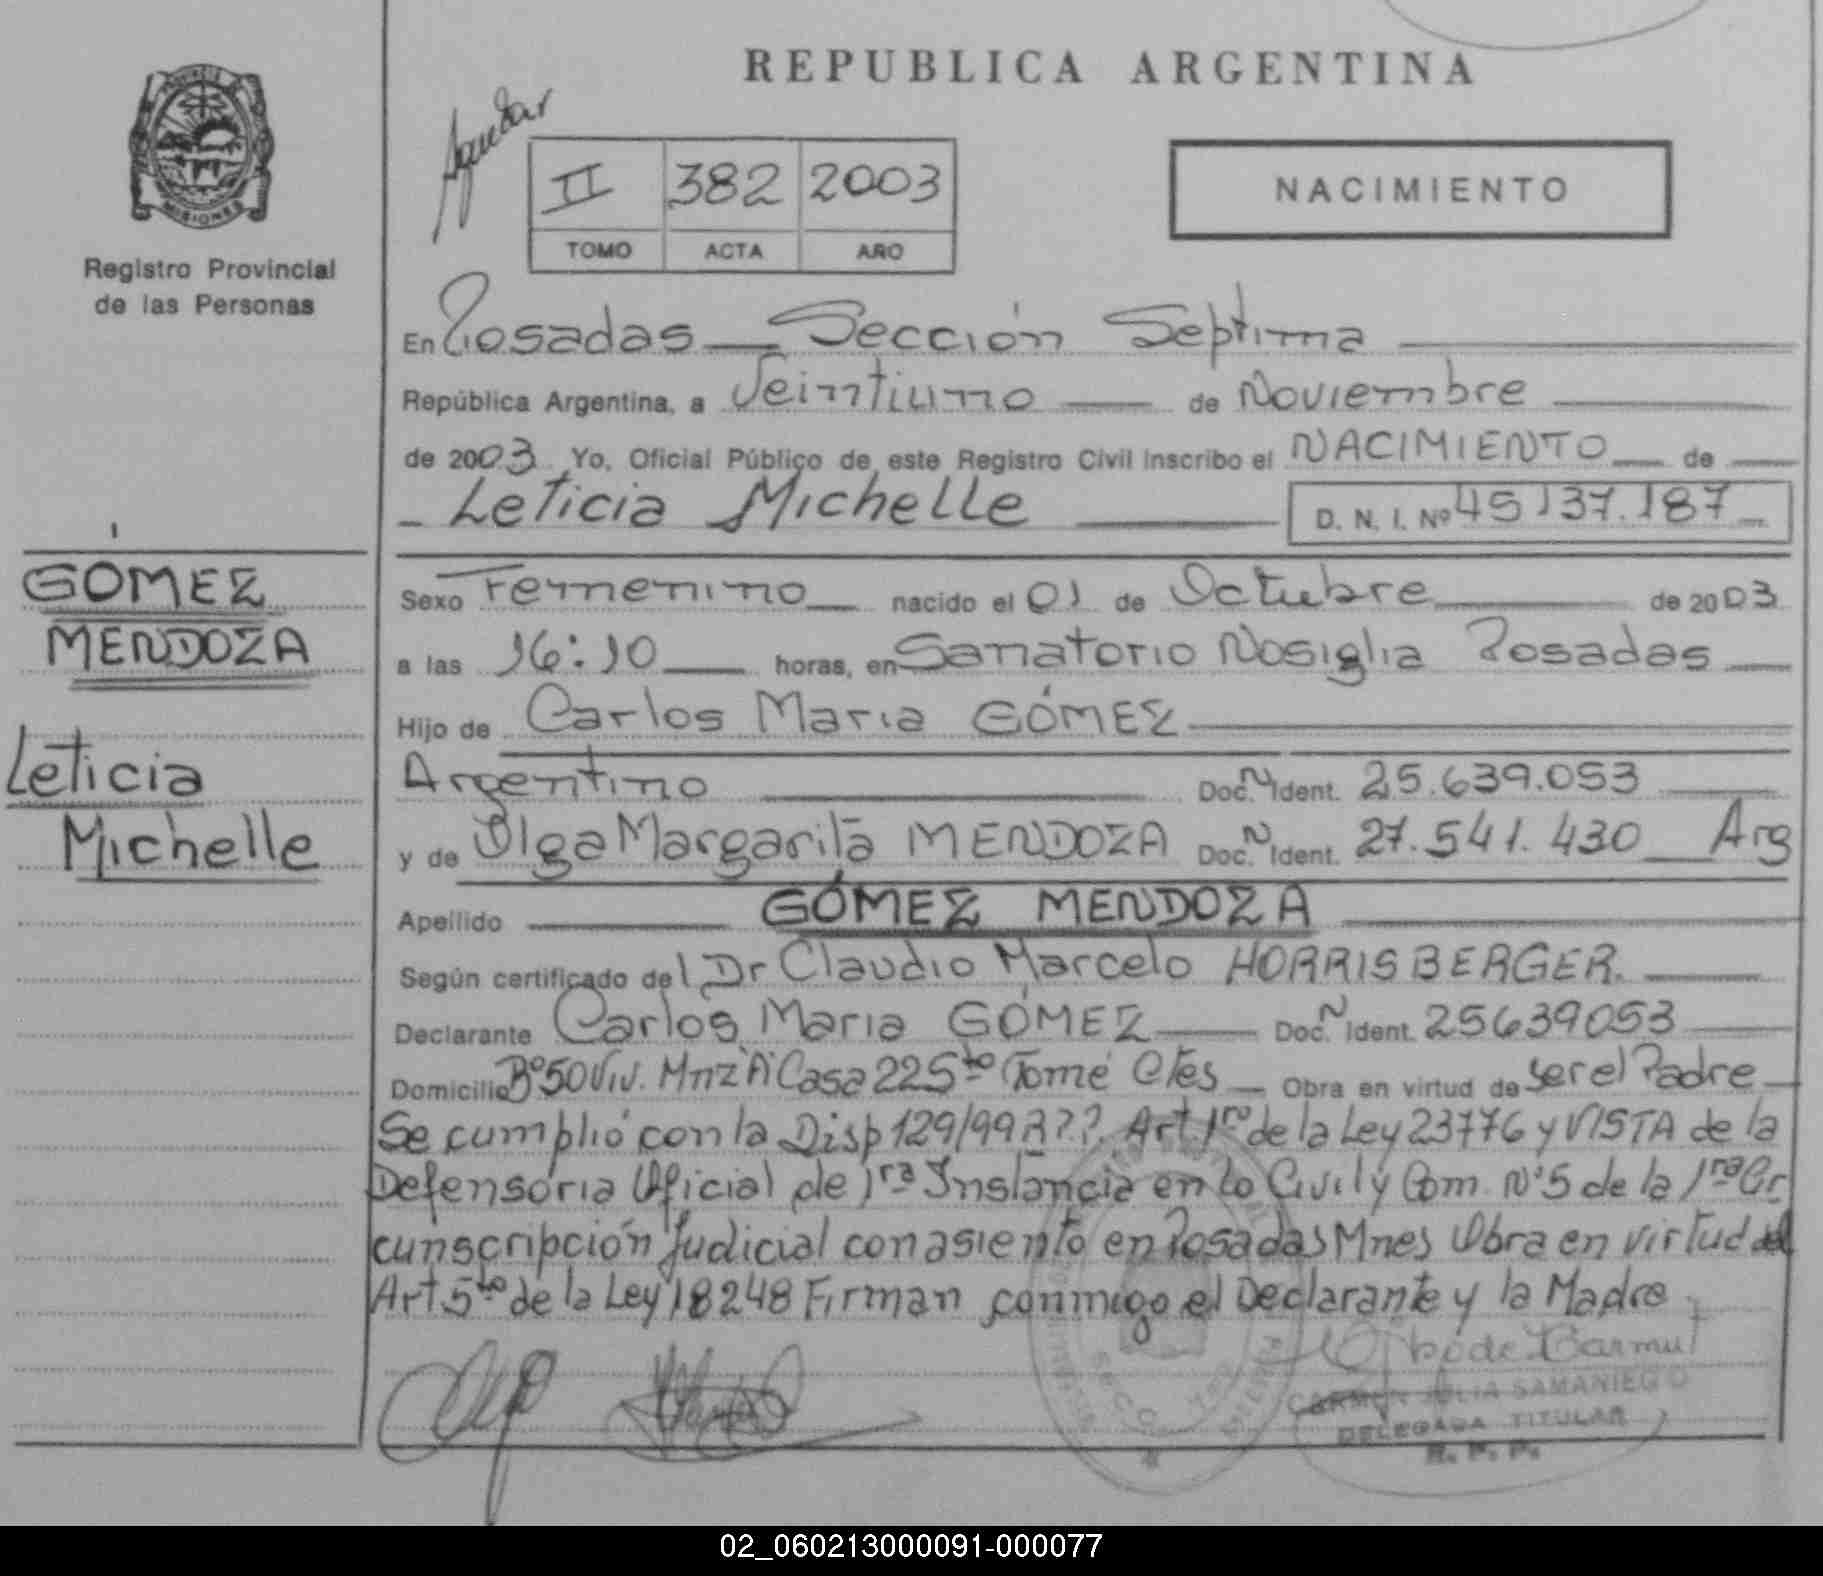 REPUBLICA ARGENTINA
PROVINCIA
MISIONES
Registro Provincial
de las Personas
II 382 2003
TOMO ACTA AÑO
NACIMIENTO
En Posadas Sección Septima
República Argentina, a Veintiuno de Noviembre
de 2003 Yo, Oficial Público de este Registro Civil inscribo el NACIMIENTO de
Leticia Michelle D. N. I. Nº 45137.187
GÓMEZ
MENDOZA
Leticia
Michelle
Sexo Femenino nacido el 01 de Octubre de 2003
a las 16:10 horas, en Sanatorio Nosiglia Posadas
Hijo de Carlos Maria GÓMEZ
Argentino Doc. N Ident. 25.639.053
y de Olga Margarita MENDOZA Doc. N Ident. 27.541.430 Arg
Apellido GÓMEZ MENDOZA
Según certificado del Dr Claudio Marcelo HORRISBERGER.
Declarante Carlos Maria GÓMEZ Doc. N Ident. 25639053
Domicilio Bº 50 Viv. Mnz "A" Casa 22 Sto Tomé Ctes Obra en virtud de ser el Padre
Se cumplió con la Disp 129/99 R.P.P. Art. 1ro de la Ley 23776 y VISTA de la
Defensoria Oficial de 1ra Instancia en lo Civil y Com. Nº 5 de la 1ra Cir
cunscripción Judicial con asiento en Posadas Mnes Obra en virtud del
Art. 5to de la Ley 18248 Firman conmigo el Declarante y la Madre
CARMEN JULIA SAMANIEGO
DELEGADA TITULAR
R. P. P.
02_060213000091-000077